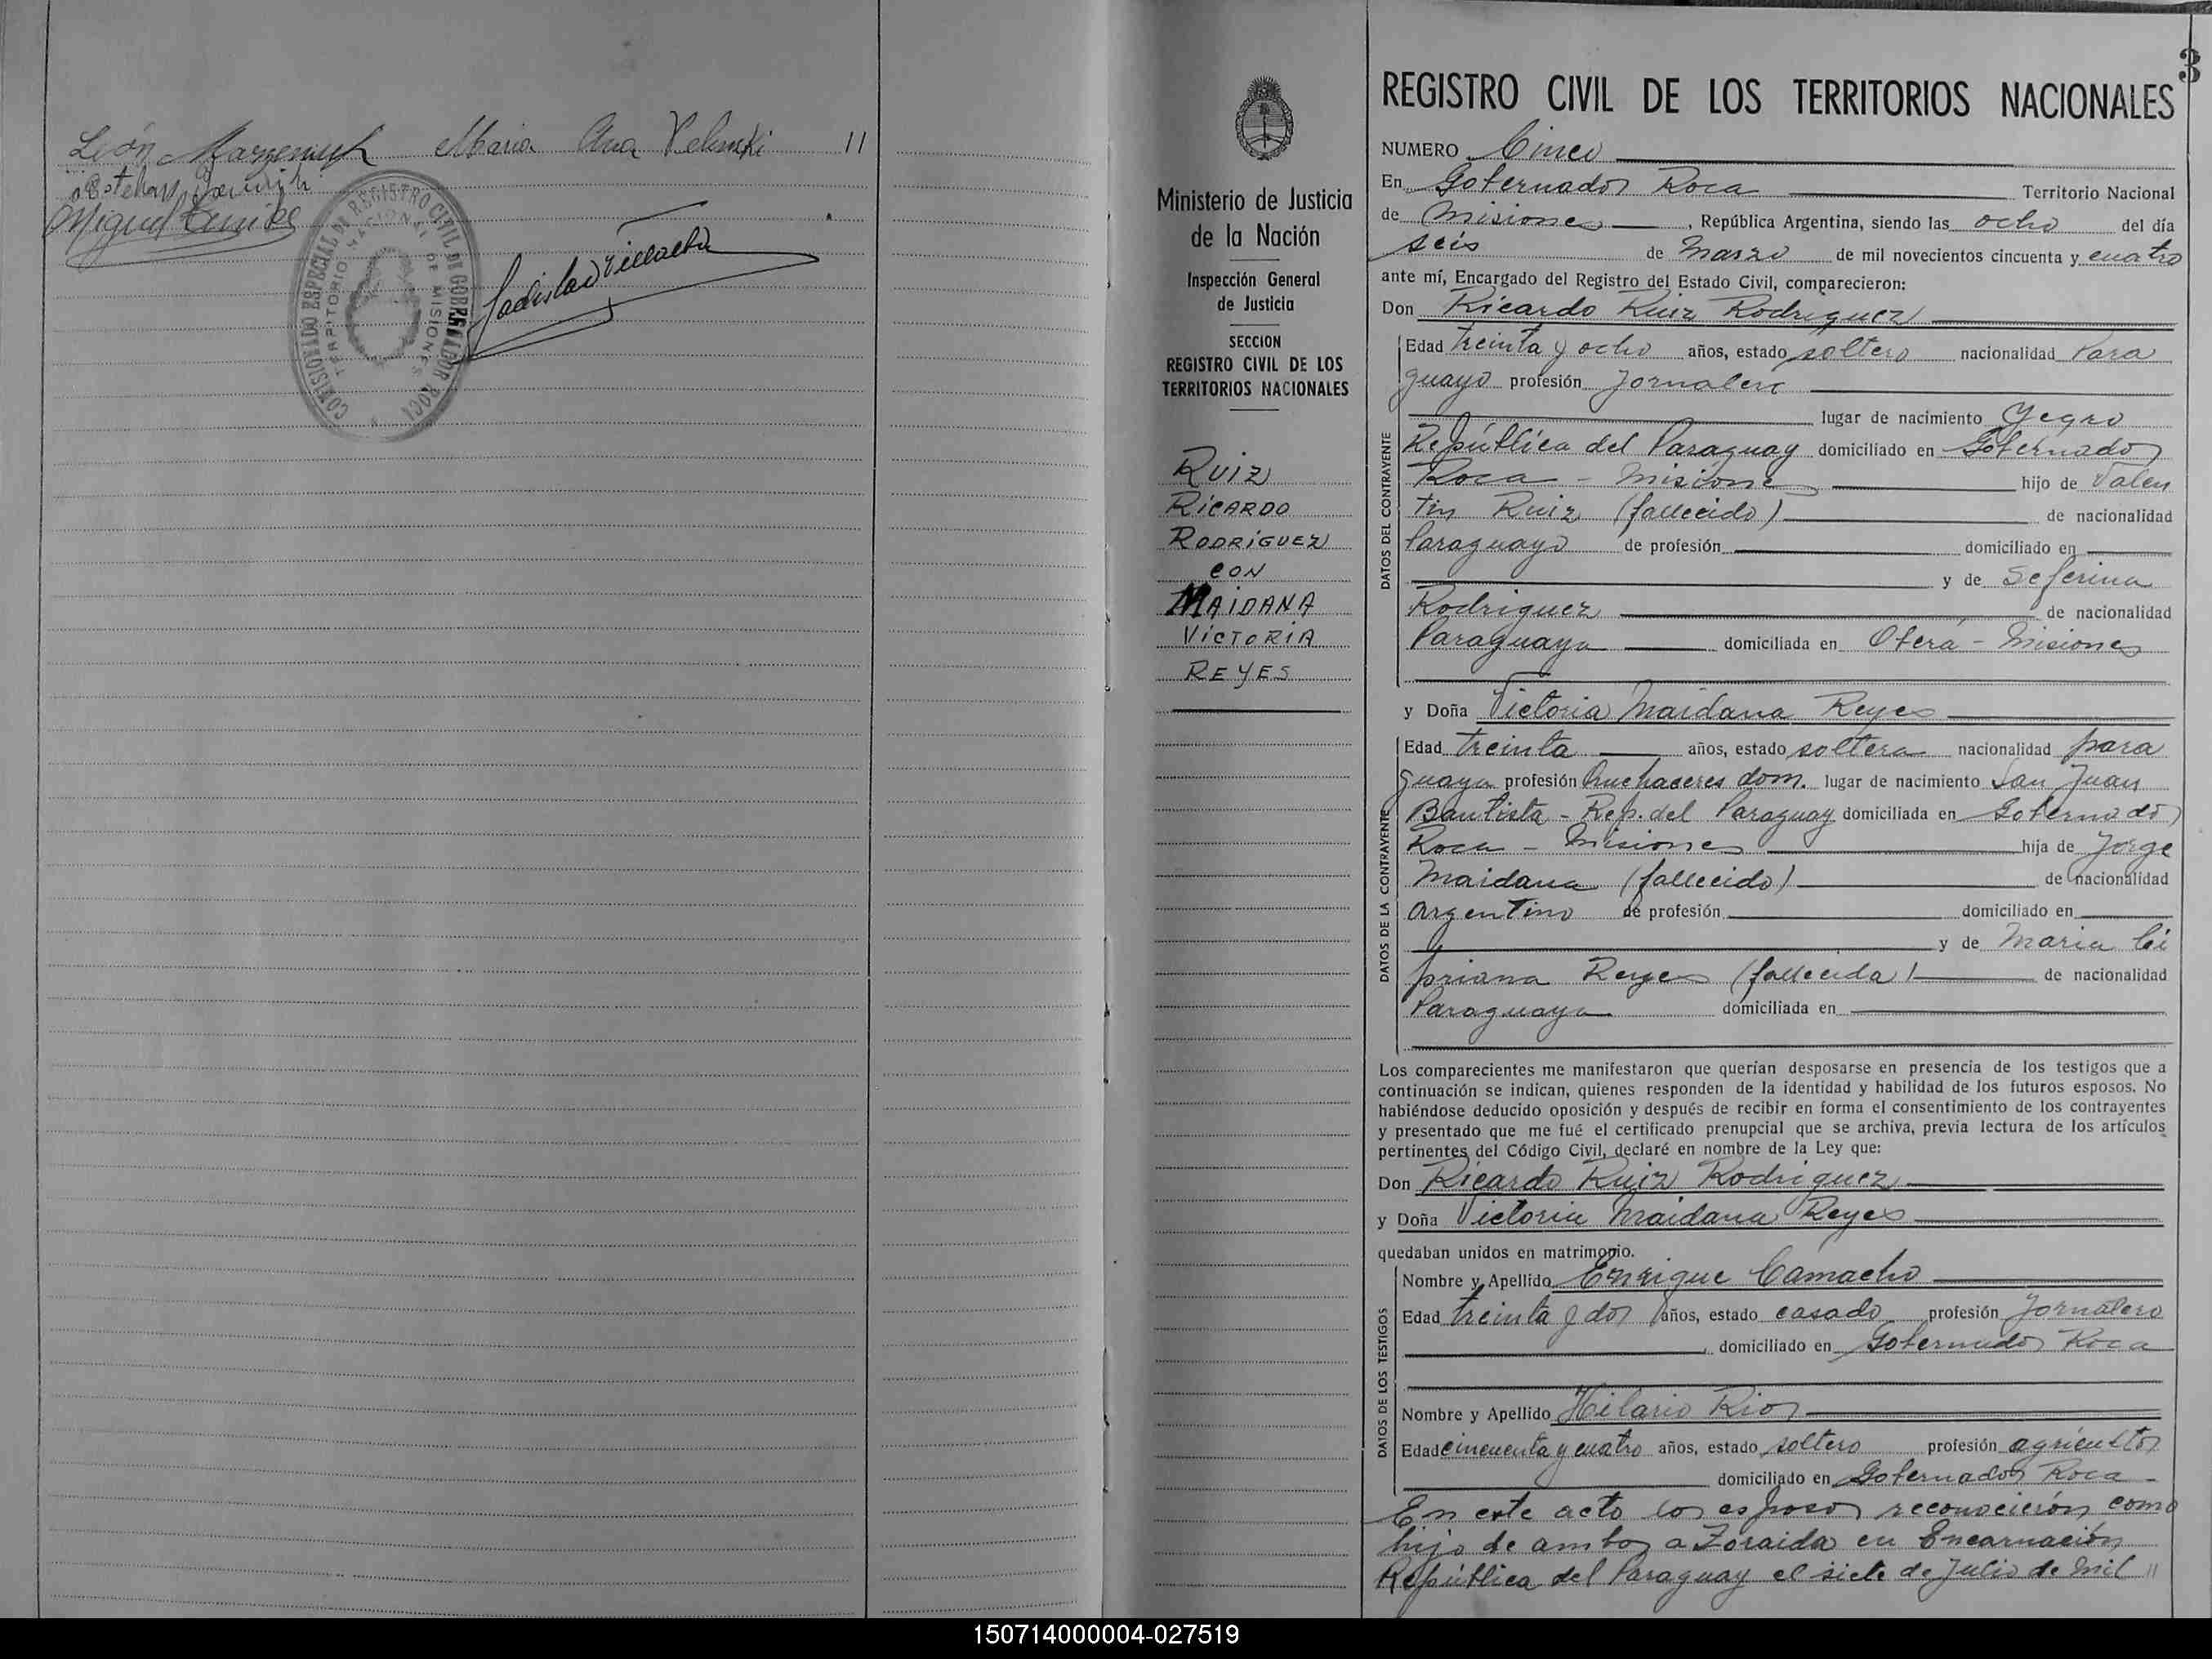 León Maria Ana 11
Miguel
COMISIONADO ESPECIAL DE REGISTRO CIVIL DE GOBERNADOR ROCA
TERRITORIO NACIONAL DE MISIONES
Ladislao Villalba
Ministerio de Justicia
de la Nación
Inspección General
de Justicia
SECCION
REGISTRO CIVIL DE LOS
TERRITORIOS NACIONALES
RUIZ
RICARDO
RODRIGUEZ
CON
MAIDANA
VICTORIA
REYES
3
REGISTRO CIVIL DE LOS TERRITORIOS NACIONALES
NUMERO Cinco
En Gobernador Roca Territorio Nacional
de Misiones, República Argentina, siendo las ocho del día
seis de Marzo de mil novecientos cincuenta y cuatro
ante mí, Encargado del Registro del Estado Civil, comparecieron:
Don Ricardo Ruiz Rodriguez
DATOS DEL CONTRAYENTE
Edad treinta y ocho años, estado soltero nacionalidad Para
guayo profesión Jornalero
lugar de nacimiento Yegro
República del Paraguay domiciliado en Gobernador
Roca - Misiones hijo de Valen
tin Ruiz (fallecido) de nacionalidad
Paraguayo de profesión domiciliado en
y de Seferina
Rodriguez de nacionalidad
Paraguaya domiciliada en Oberá - Misiones
y Doña Victoria Maidana Reyes
DATOS DE LA CONTRAYENTE
Edad treinta años, estado soltera nacionalidad para
guaya profesión huehaceres dom. lugar de nacimiento San Juan
Bautista - Rep. del Paraguay domiciliada en Gobernador
Roca - Misiones hija de Jorge
Maidana (fallecido) de nacionalidad
argentino de profesión domiciliado en
y de Maria Ci
priana Reyes (fallecida) de nacionalidad
Paraguaya domiciliada en
Los comparecientes me manifestaron que querían desposarse en presencia de los testigos que a
continuación se indican, quienes responden de la identidad y habilidad de los futuros esposos. No
habiéndose deducido oposición y después de recibir en forma el consentimiento de los contrayentes
y presentado que me fué el certificado prenupcial que se archiva, previa lectura de los artículos
pertinentes del Código Civil, declaré en nombre de la Ley que:
Don Ricardo Ruiz Rodriguez
y Doña Victoria Maidana Reyes
quedaban unidos en matrimonio.
DATOS DE LOS TESTIGOS
Nombre y Apellido Enrique Camacho
Edad treinta y dos años, estado casado profesión Jornalero
domiciliado en Gobernador Roca
Nombre y Apellido Hilario Rios
Edad cincuenta y cuatro años, estado soltero profesión agricultor
domiciliado en Gobernador Roca -
En este acto los esposos reconocierón como
hijo de ambos a Zoraida en Encarnación
República del Paraguay el siete de Julio de mil //
150714000004-027519